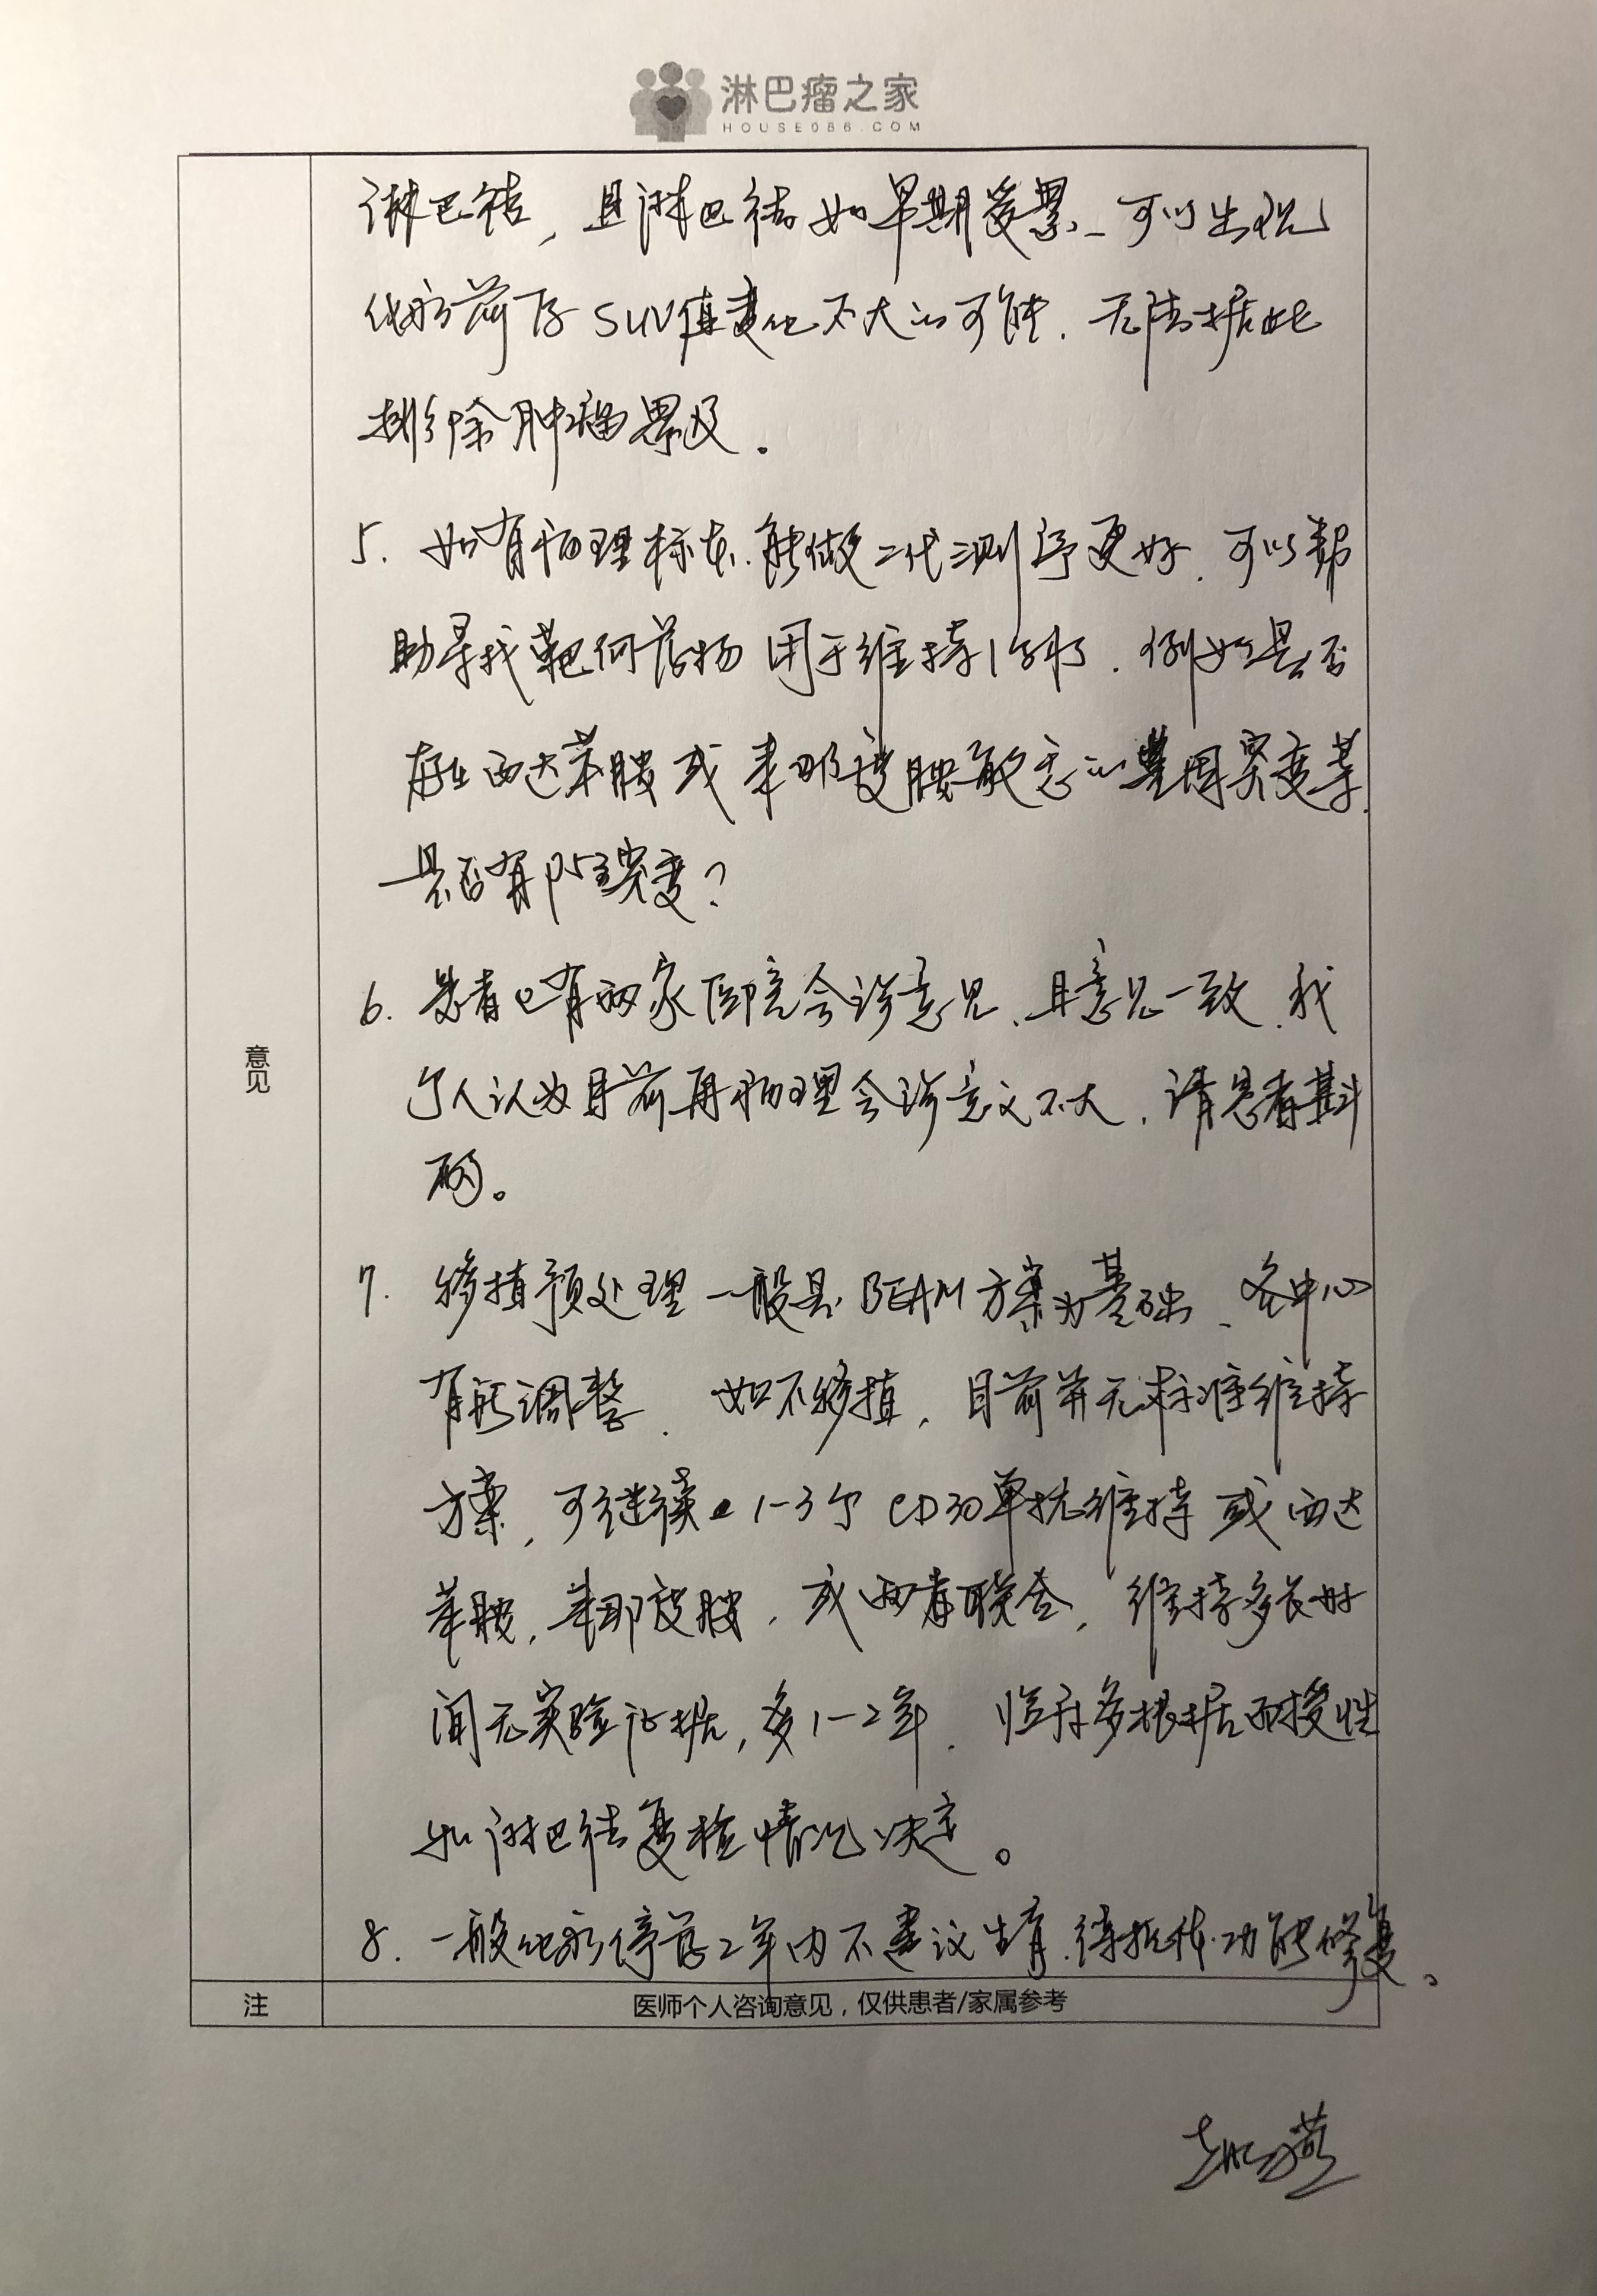 淋巴瘤之家
HOUSE086.COM
淋巴结，且淋巴结如早期受累、可以出现
化疗前后SUV值变化不大的可能．无法据此
排除肿瘤累及。
5. 如有病理标本、能做二代测序更好．可以帮
助寻找靶向药物用于维持治疗．例如是否
存在西达苯胺或来那度胺敏感的基因突变等．
是否有P53突变？
6. 患者已有两家医院会诊意见、且意见一致．我
个人认为目前再病理会诊意义不大．请患者斟
酌。
7. 移植预处理一般是BEAM方案为基础、各中心
有所调整．如不移植，目前并无标准维持
方案，可继续1-3个CD30单抗维持或西达
苯胺，来那度胺，或两者联合，维持多长时
间无实验证据，多1-2年．临床多根据耐受性
和淋巴结复检情况决定。
8. 一般化疗停药2年内不建议生育．待抵抗功能修复。
意见
注
医师个人咨询意见，仅供患者/家属参考